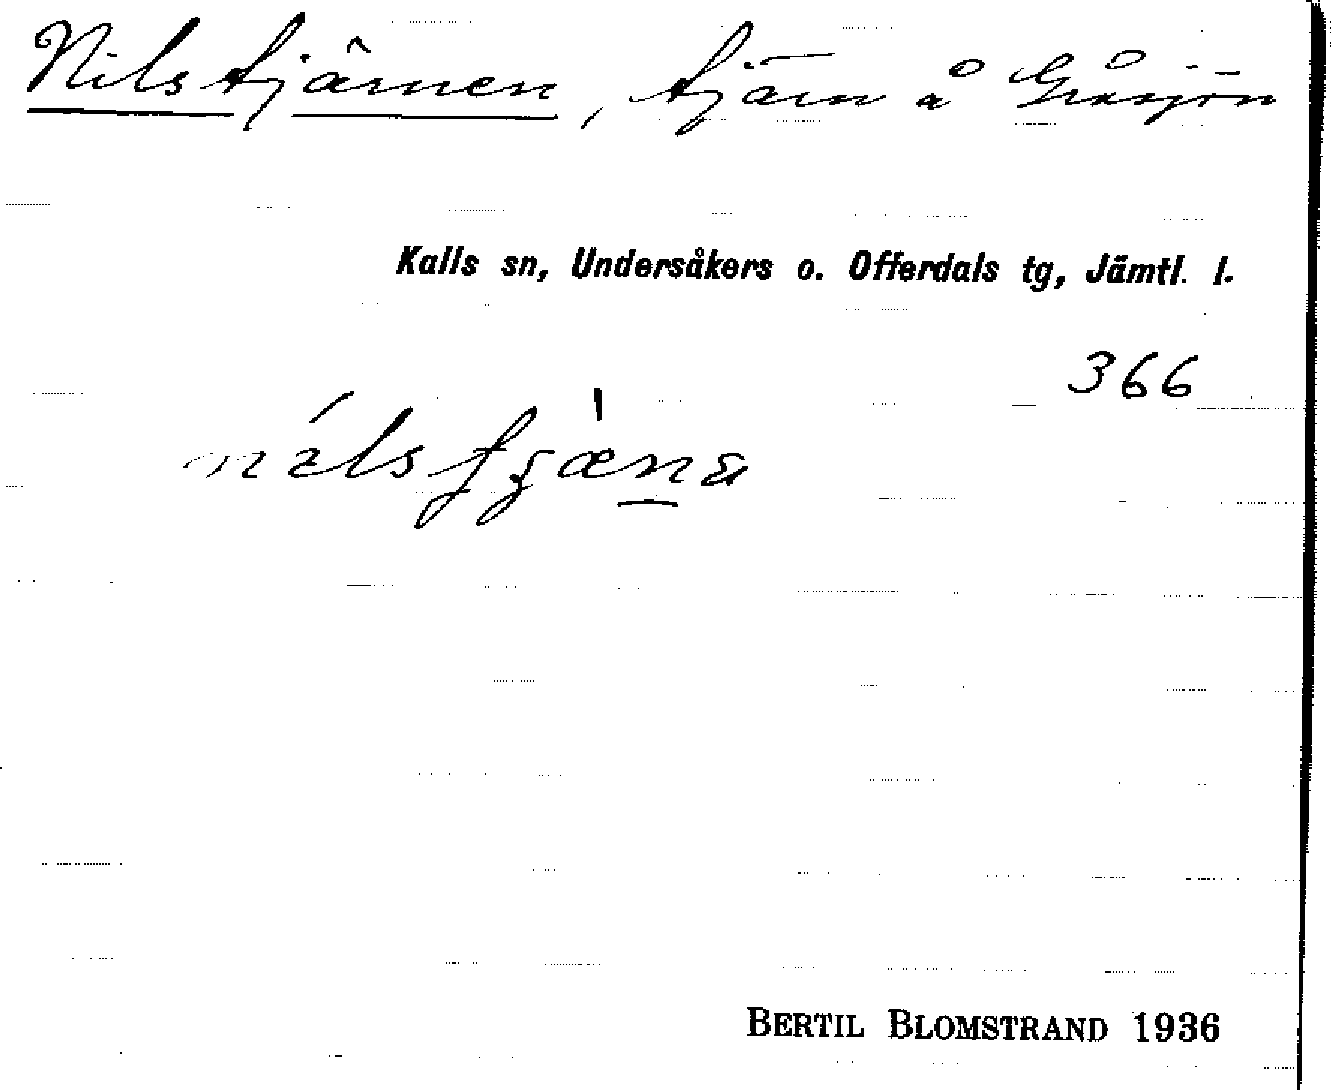 Nilstjärnen, tjärn å Gråsjön
Kalls sn, Undersåkers o. Offerdals tg, Jämtl. l.
366
BERTIL BLOMSTRAND 1936